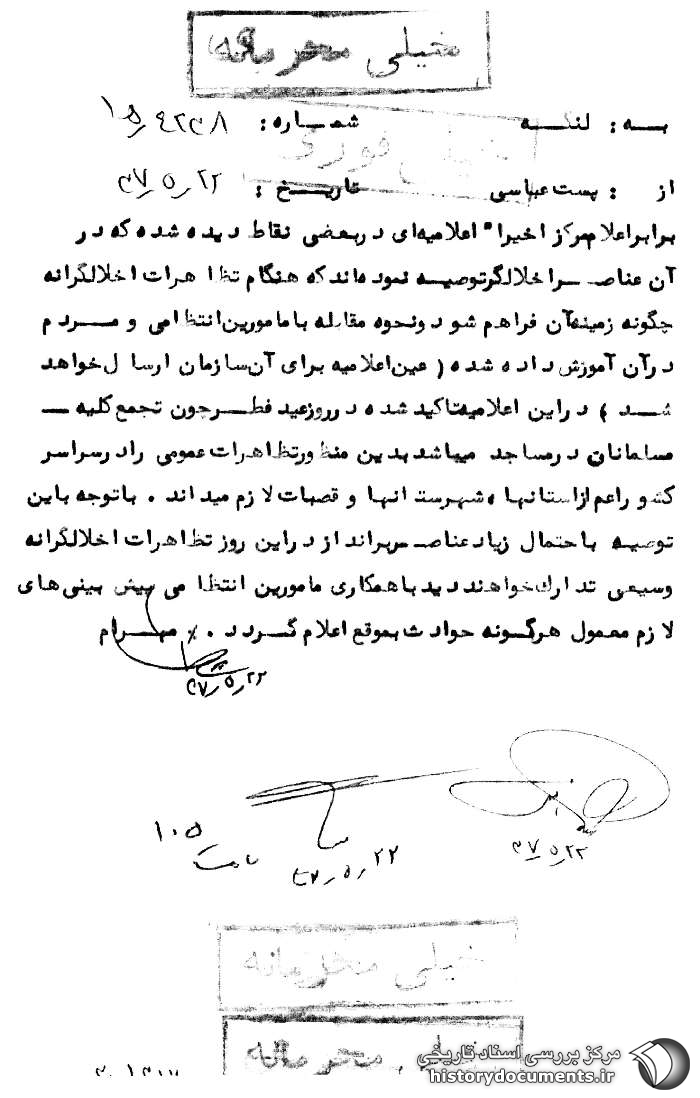 خیلی محرمانه
به: لنگه    شماره: ۱۵/۴۲۳۸
خیلی فوری
از : بست عباسی    تاریخ : ۳۷/۵/۲۲
برابراعلام مرکز اخیرا" اعلامیه‌ای دربعضی نقاط دیده شده که در
آن عناصر اخلالگرتوصیه نموده‌اند که هنگام تظاهرات اخلالگرانه
چگونه زمینه‌آن فراهم شود ونحوه مقابله با مامورین انتظامی و مردم
درآن آموزش داده شده ( عین اعلامیه برای آن سازمان ارسال خواهد
شد ) دراین اعلامیه تاکید شده درروز عید فطر چون تجمع کلیه
مسلمانان درمساجد میباشد بدین منظور تظاهرات عمومی را درسراسر
کشور اعم ازاستانها ، شهرستانها و قصبات لازم میداند . باتوجه باین
توصیه باحتمال زیاد عناصر برانداز دراین روز تظاهرات اخلالگرانه
وسیعی تدارک خواهند دید باهمکاری مامورین انتظامی پیش بینی‌های
لازم معمول هرگونه حوادث بموقع اعلام گردد . ٪ مهرام
۳۷/۵/۲۲
۱۰۵
ساعت
۳۷/۵/۲۲
۳۷/۵/۲۲
خیلی محرمانه
خیلی محرمانه
مرکز بررسی اسناد تاریخی
historydocuments.ir